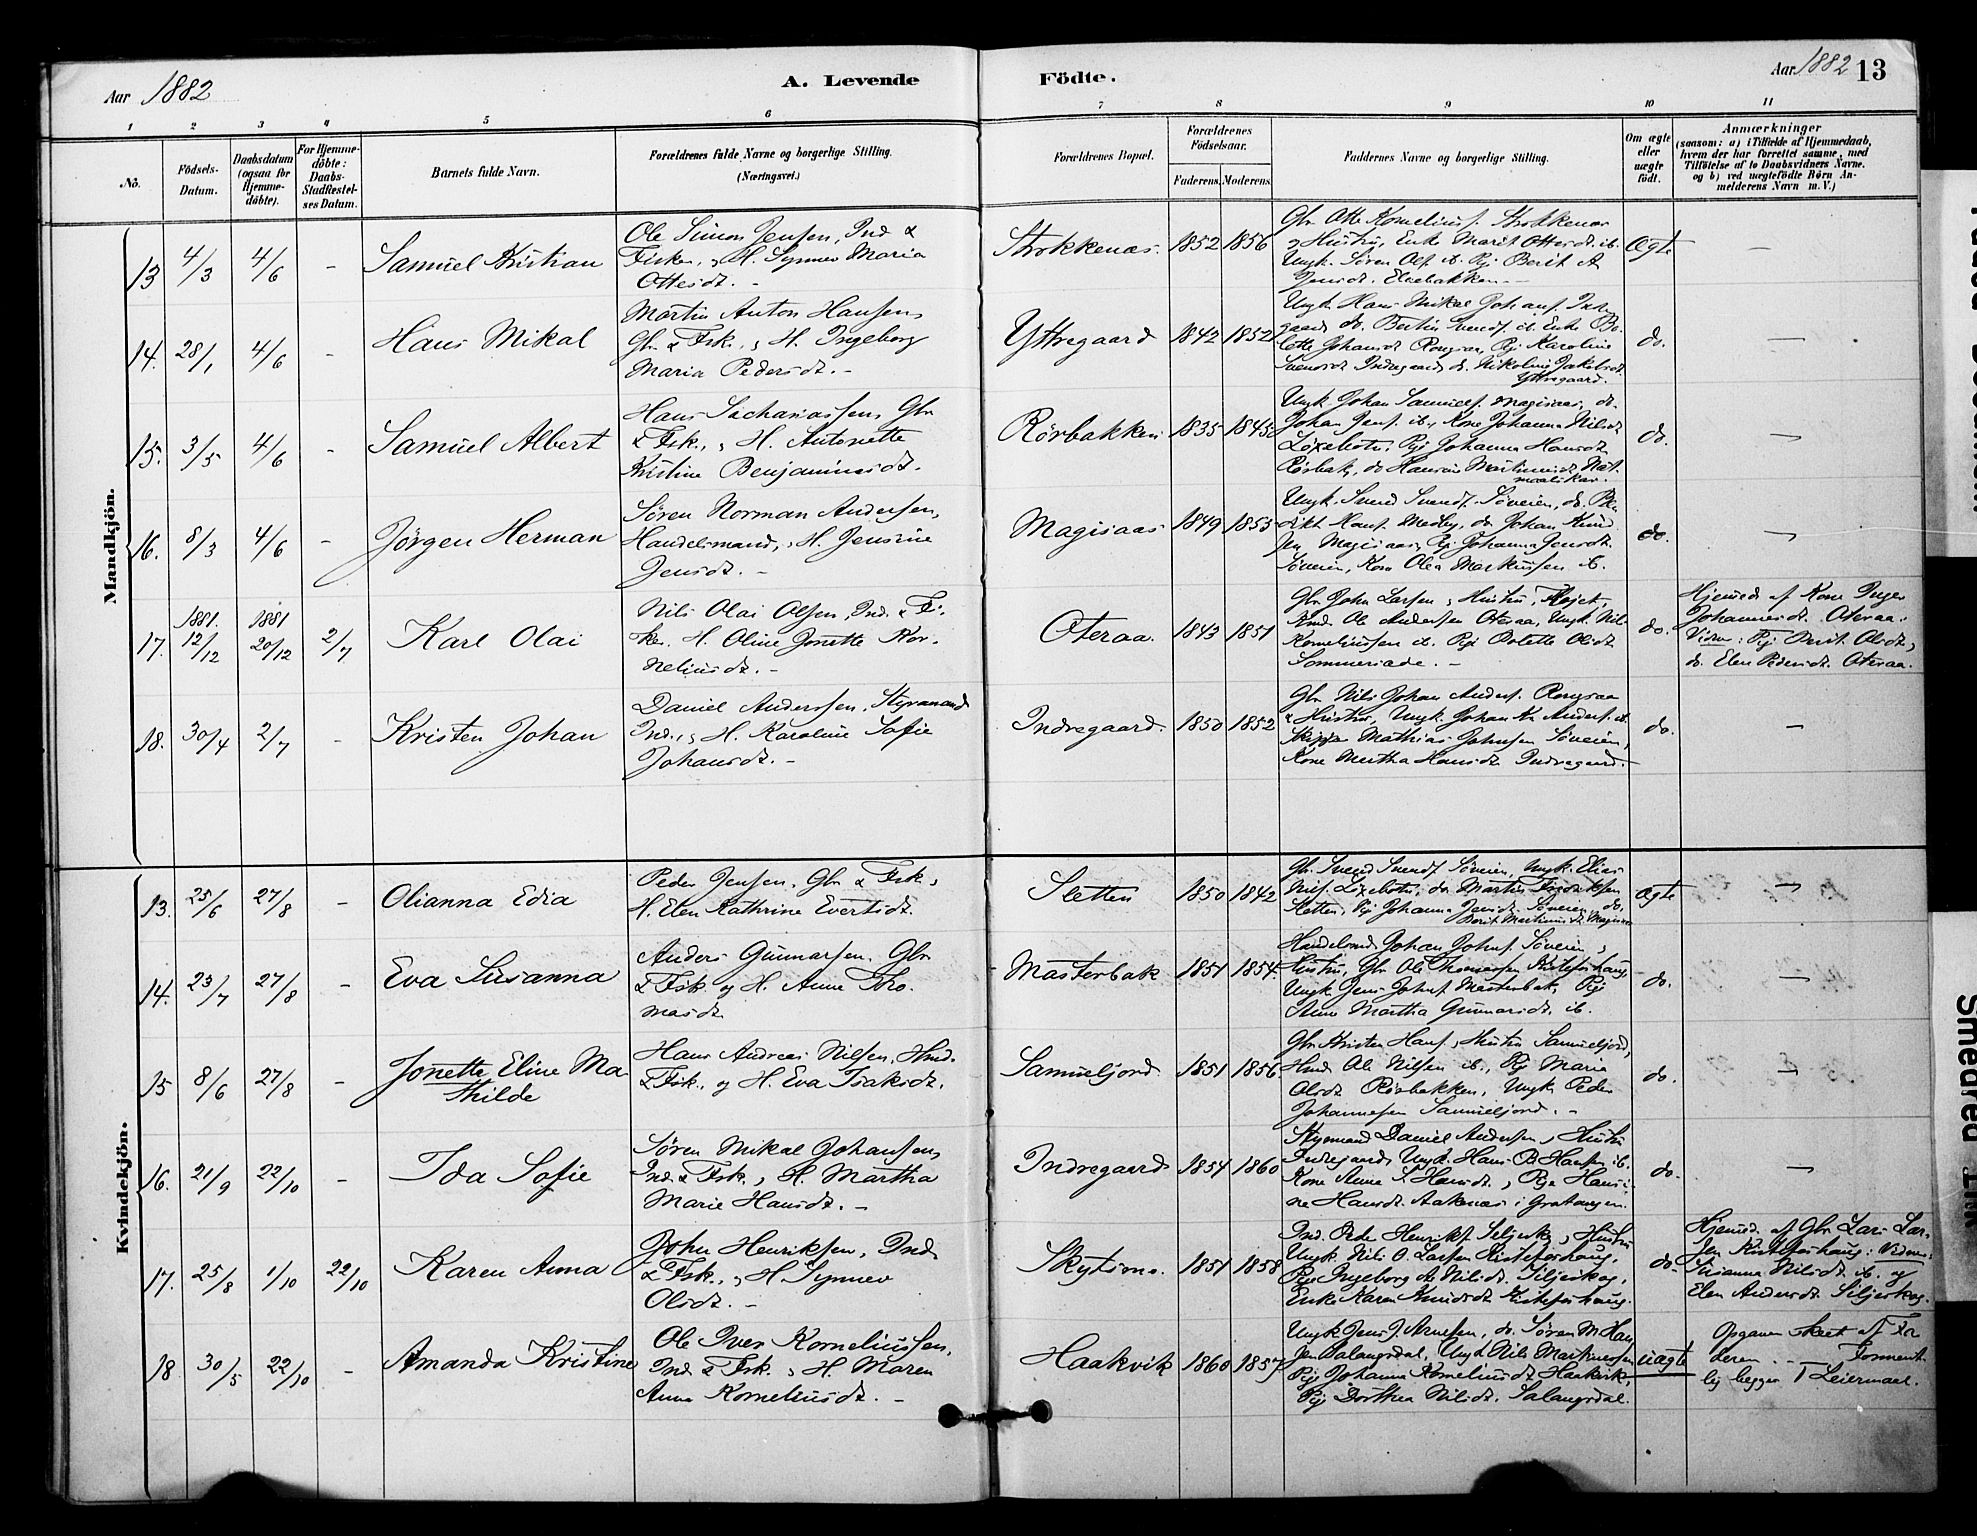 Aar 1882
A. Levende
Födte.
Aar 1882 13
1 2 3 4 5 6 7 8 9 10 11
No.
Födsels-Datum.
Daabsdatum (ogsaa for Hjemme-döbte).
For Hjemme-döbte: Daabs-Stadfæstel-ses Datum.
Barnets fulde Navn.
Forældrenes fulde Navne og borgerlige Stilling. (Næringsvei.)
Forældrenes Bopæl.
Forældrenes Födselsaar.
Faderens. Moderens.
Faddernes Navne og borgerlige Stilling.
Om ægte eller uægte födt.
Anmærkninger
(saasom: a) i Tilfælde af Hjemmedaab, hvem der har forrettet samme, med Tilföielse af to Daabsvidners Navne, og b) ved uægtefödte Börn Anmelderens Navn m. V.)
Mandkjön.
13 4/3 4/6 - Samuel Kristian
Ole Simon Jensen, Ind &
Fisker, og H. Synnev Maria
Ottesdt. -
Stokkenæs. 1852 1856
Gbr. Otte Korneliusf. Stokkenæs
og Hustru, Enke Marit Ottesdt. ib.
Ungk. Søren Olsf. ib. Pige Berit A
Jensdt. Elvebakken -
Ægte -
14. 28/1 4/6 - Hans Mikal
Martin Anton Hansen,
Gbr & Fsk., og H. Ingeborg
Maria Pedersdt. -
Yttregaard 1842 1852
Ungk. Hans Mikal Johansf. Indr
gaard do. Bertin Svendsf. ib. Enke Bo
lette Johansdt Rongaa, Pig Karoline
Svendsdt Indregaard do. Nikoline Jakobsdt
Yttregaard.
do. -
15. 3/5 4/6 - Samuel Albert
Hans Sachariassen, Gbr
& Fsk., og H. Antonette
Kristine Benjaminsdt.
Rörbakken 1835 1845
Ungk. Johan Samuelsf. Magisaas, do.
Johan Jensf. ib., Kone Johanna Nilsdt
Löxebotn, Pige Johanna Hansdt
Rörbak, do Hansine Martinusdt
do. -
16. 8/3 4/6 - Jörgen Herman
Søren Norman Andersen,
Handelsmand, og H. Jensine
Jensdt. -
Magisaas 1849 1853
Ungk. Svend Svendsf. Søveien, do. Be
dikt Hansf. Medby, do. Johan Knud
sen Magisaas, Pig. Johanna Jensdt.
Søveien, Kone Olea Markussen ib.
do. -
17. 1881. 12/12 1881 20/12 2/7 Karl Olai
Nils Olai Olsen, Ind. & Fi-
sker. H. Oline Jonette Kor-
neliusdt. -
Oteraa. 1843 1851
Gbr. John Larsen og Hustru, Fløjet,
Ind. Ole Andersen Oteraa, Ungk. Nils
Korneliussen ib. Pige Oslette Olsdt
Sommersæde. -
do. Hjemmed. af Kone Inger
Johannesdt. Oteraa.
Vidner: Pige Berit Olsdt,
do. Elen Pedersdt. Oteraa.
18. 30/4 2/7 - Kristen Johan
Daniel Andersen, Styrmand
Ind., og H. Karoline Sofie
Johansdt. -
Indregaard. 1850 1852
Gbr. Nils Johan Andersf. Rongaa
& Hustru, Ungk. Johan Kr Andersf. ib.
Skipper Mathias Johnsen Søveien,
Kone Martha Hansdt Indregaard -
do. -
Kvindekjön.
13. 25/6 27/8 - Olianna Edia
Peder Jensen, Gbr & Fsk,
H. Elen Kathrine Evertsdt.
Sletten 1850 1842
Gbr. Svend Svendsf Søveien, Ungk. Elias
Nilsf. Löxebotn, do. Martin Fredriksen
Sletten, Pig. Johanna Jensdt. Søveien, do.
Berit Martinusdt, Magisaas
Ægte -
14. 23/7 27/8 - Eva Susanna
Anders Gunnarsen, Gbr
& Fsk og H. Anne Tho-
masdt
Mæsterbak 1851 1854.
Handelsmd Johan Johnsf. Søveien og
Hustru, Gbr Ole Thomassen Kistefoshaug
Ungk. Jens Johnsf Mæsterbak, Pige
Anne Martha Gunnarsdt. ib.
do. -
15 8/6 27/8 - Jonette Eline Ma
thilde
Hans Andreas Nilsen, Hmd.
& Fsk., og H. Eva Isaksdt.
Samueljord. 1851 1856.
Gbr Kristen Hansf. og Hustru Samueljord,
Hmd Ole Nilsen ib., Pig Maria
Olsdt Rörbakken, Ungk. Peder
Johannesen Samueljord. -
do. -
16. 21/9 22/10 - Ida Sofie
Søren Mikal Johansen,
Ind. & Fsk., H. Martha
Marie Hansdt. -
Indregaard 1854 1860
Styrmand Daniel Andersen og Hustru
Indregaard, Ungk. Hans P. Hansen ib.
Kone Anne S. Hansdt., Pige Hansi-
ne Hansdt. Aakenæs i Gratangen.
do. -
17. 25/8 1/10 22/10 Karen Anna
John Henriksen, Ind.
& Fsk., og H Synnev
Olsdt. -
Skytsmo. 1851 1858
Ind. Peder Henriksf Seljeskog og Hustru
Ungk. Nils O. Larsen Kistefoshaug,
Pige Ingeborg Nilsdt. Siljeskog,
Enke Karen Knudsdt. Kistefoshaug.
do. Hjemmed. af Gbr. Lars Lar-
sen Kistefoshaug: Vidner:
Susanna Nilsdt ib. og
Elen Andersdt Siljeskog.
18. 30/5 22/10 - Amanda Kristine
Ole Iver Korneliussen,
Ind & Fsk. og H. Maren
Anna Korneliusdt. -
Haakvik 1860 1857
Ungk Jens J. Arnesen, do. Søren M Han
sen Salangsdal, Ungk Nils Martinussen
Pige Johanna Korneliusdt Haakvik,
Pige Dorthea Nilsdt. Salangsdal.
uægte Opgaven skeet af Fa
deren. Forment-
lig begges 1 Leiermaal.
Smedred